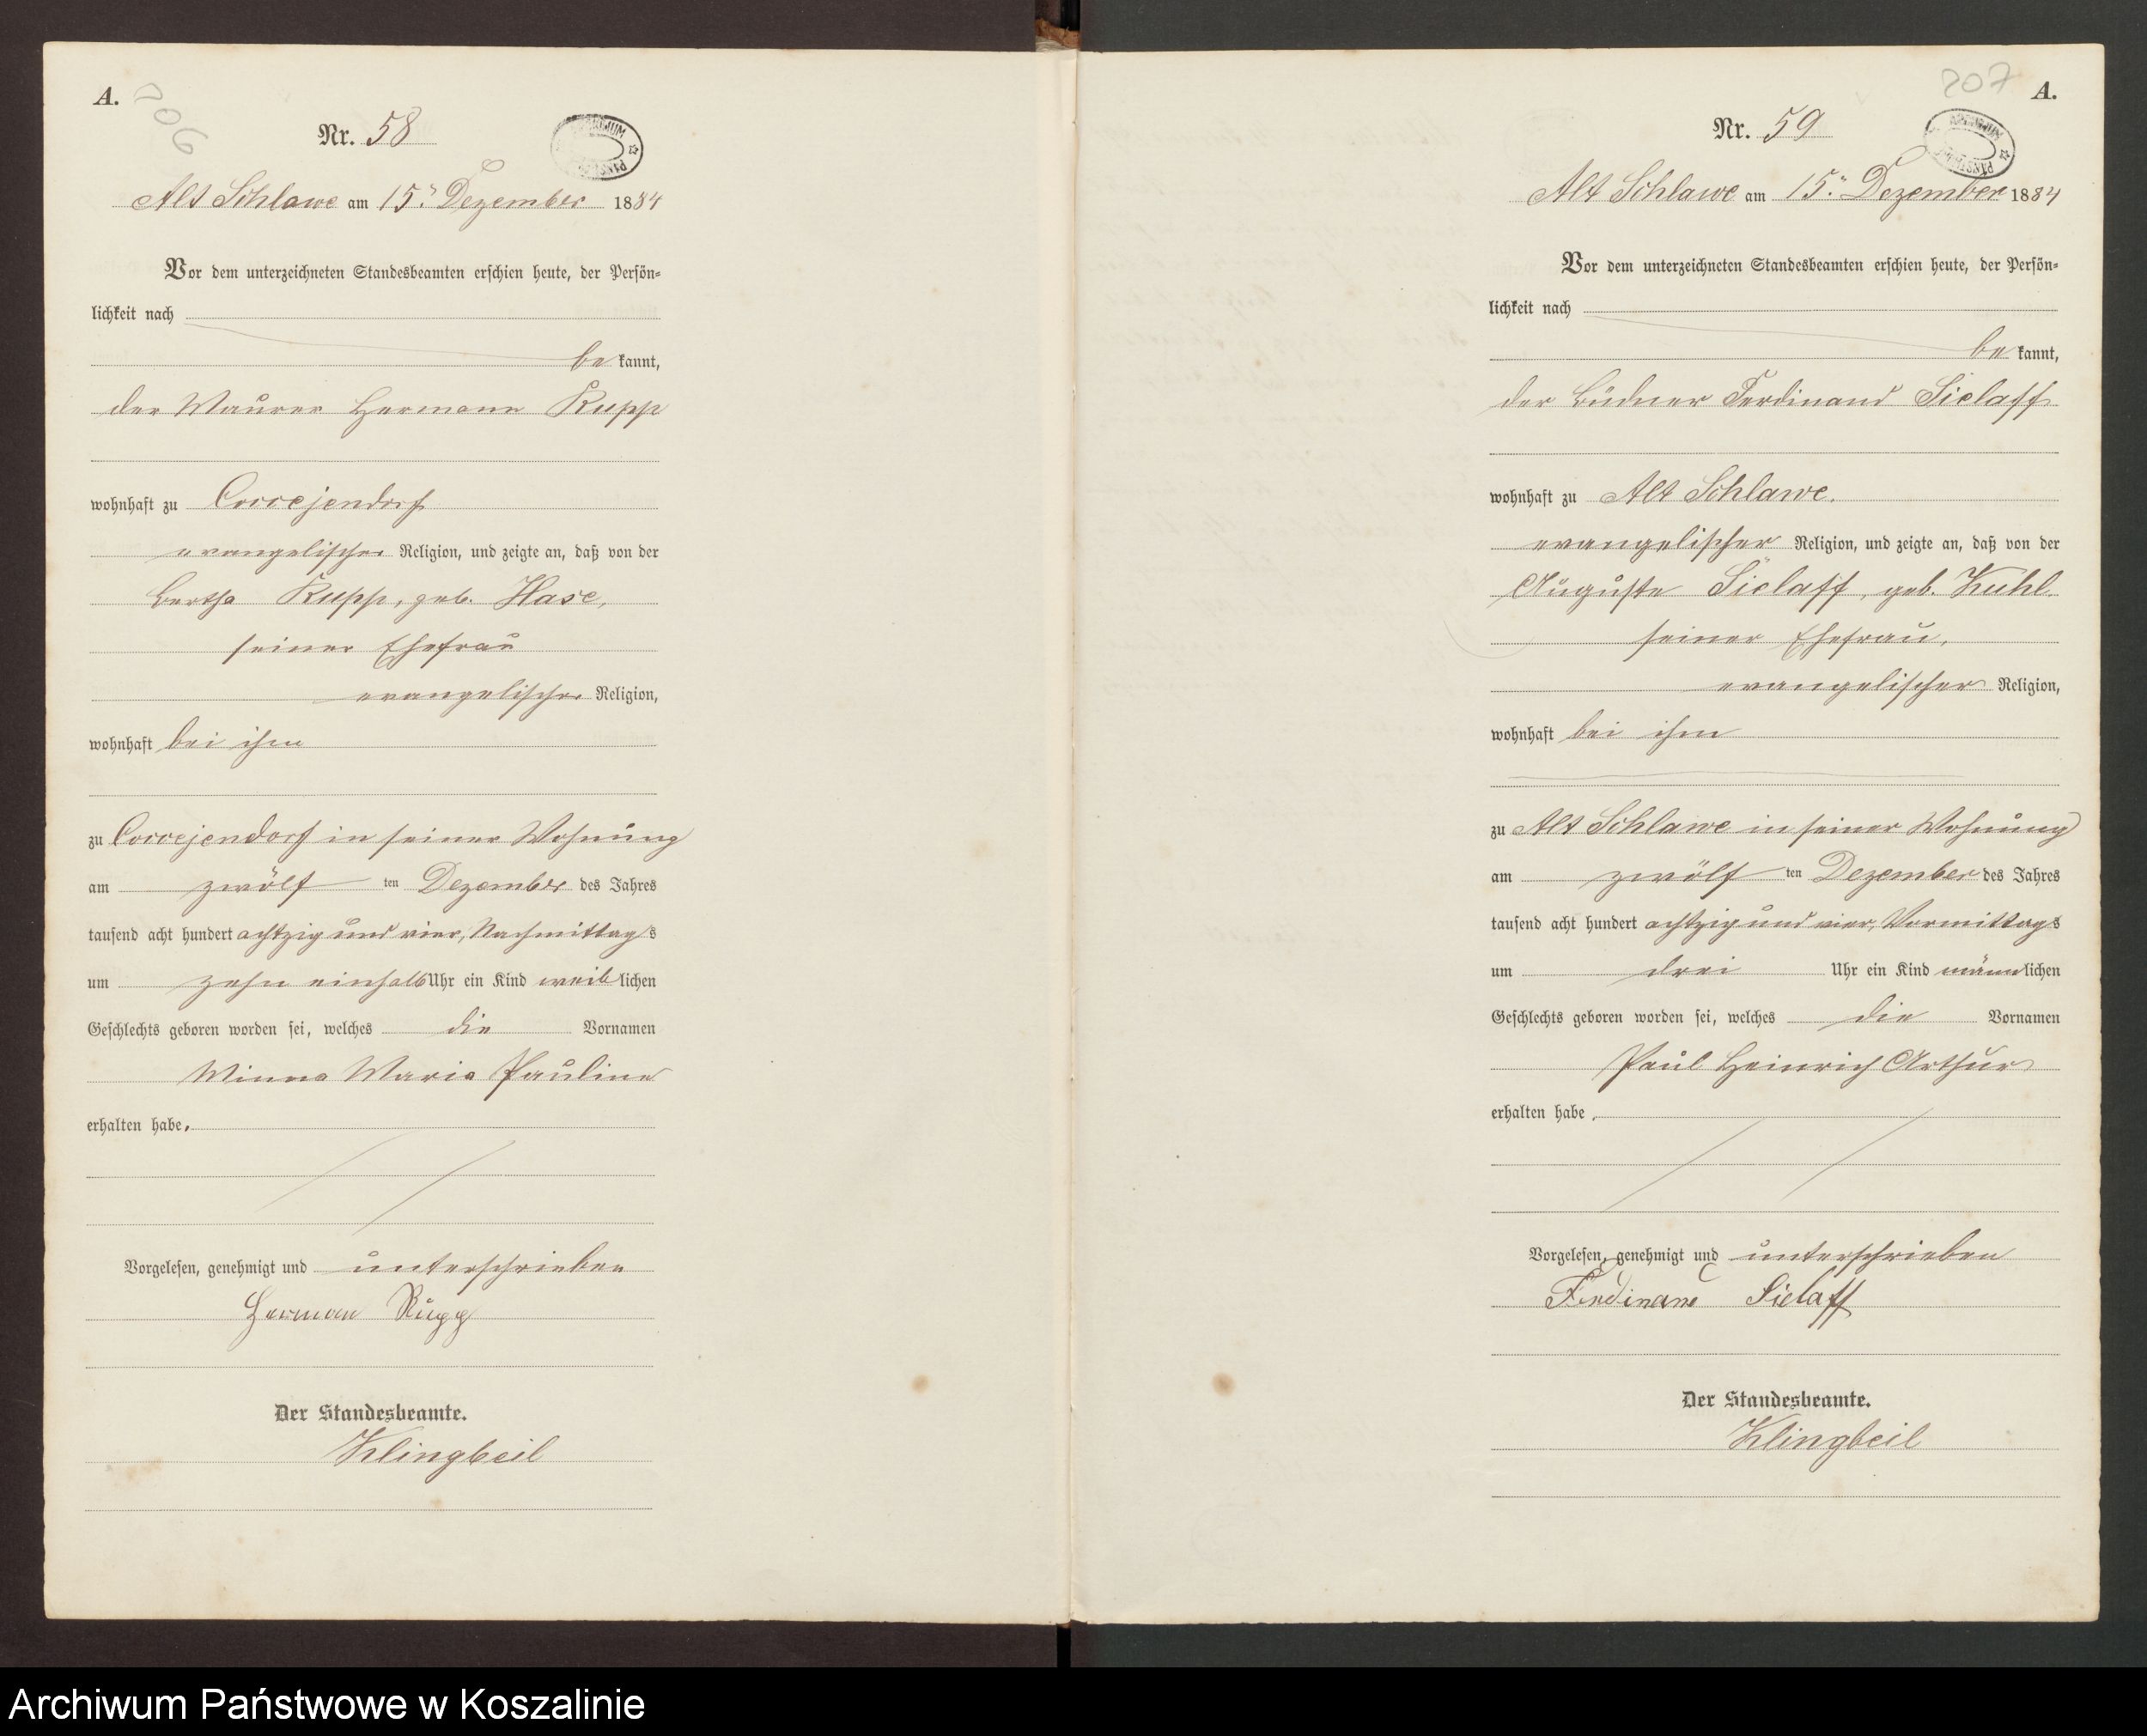 A.
206
Nr. 58
Alt Schlawe am 15ten Dezember 1884
Vor dem unterzeichneten Standesbeamten erschien heute, der Persön-
lichkeit nach
be kannt,
der Maurer Hermann Rupp
wohnhaft zu Coccejendorf
evangelischer Religion, und zeigte an, daß von der
Bertha Rupp, geb. Hase,
seiner Ehefrau
evangelischer Religion,
wohnhaft bei ihm
zu Coccejendorf in seiner Wohnung
am zwölf ten Dezember des Jahres
tausend acht hundert achtzig und vier, Nachmittags
um zehn einhalb Uhr ein Kind weiblichen
Geschlechts geboren worden sei, welches die Vornamen
Minna Maria Pauline
erhalten habe.
Vorgelesen, genehmigt und unterschrieben
Herman Rupp
Der Standesbeamte.
Klingbeil
207
A.
Nr. 59
Alt Schlawe am 15ten Dezember 1884
Vor dem unterzeichneten Standesbeamten erschien heute, der Persön-
lichkeit nach
be kannt,
der Büdner Ferdinand Sielaff
wohnhaft zu Alt Schlawe.
evangelischer Religion, und zeigte an, daß von der
Auguste Sielaff, geb. Kuhl.
seiner Ehefrau,
evangelischer Religion,
wohnhaft bei ihm
zu Alt Schlawe in seiner Wohnung
am zwölf ten Dezember des Jahres
tausend acht hundert achtzig und vier, Vormittags
um drei Uhr ein Kind männlichen
Geschlechts geboren worden sei, welches die Vornamen
Paul Heinrich Arthur
erhalten habe.
Vorgelesen, genehmigt und unterschrieben
Ferdinand Sielaff
Der Standesbeamte.
Klingbeil
Archiwum Państwowe w Koszalinie